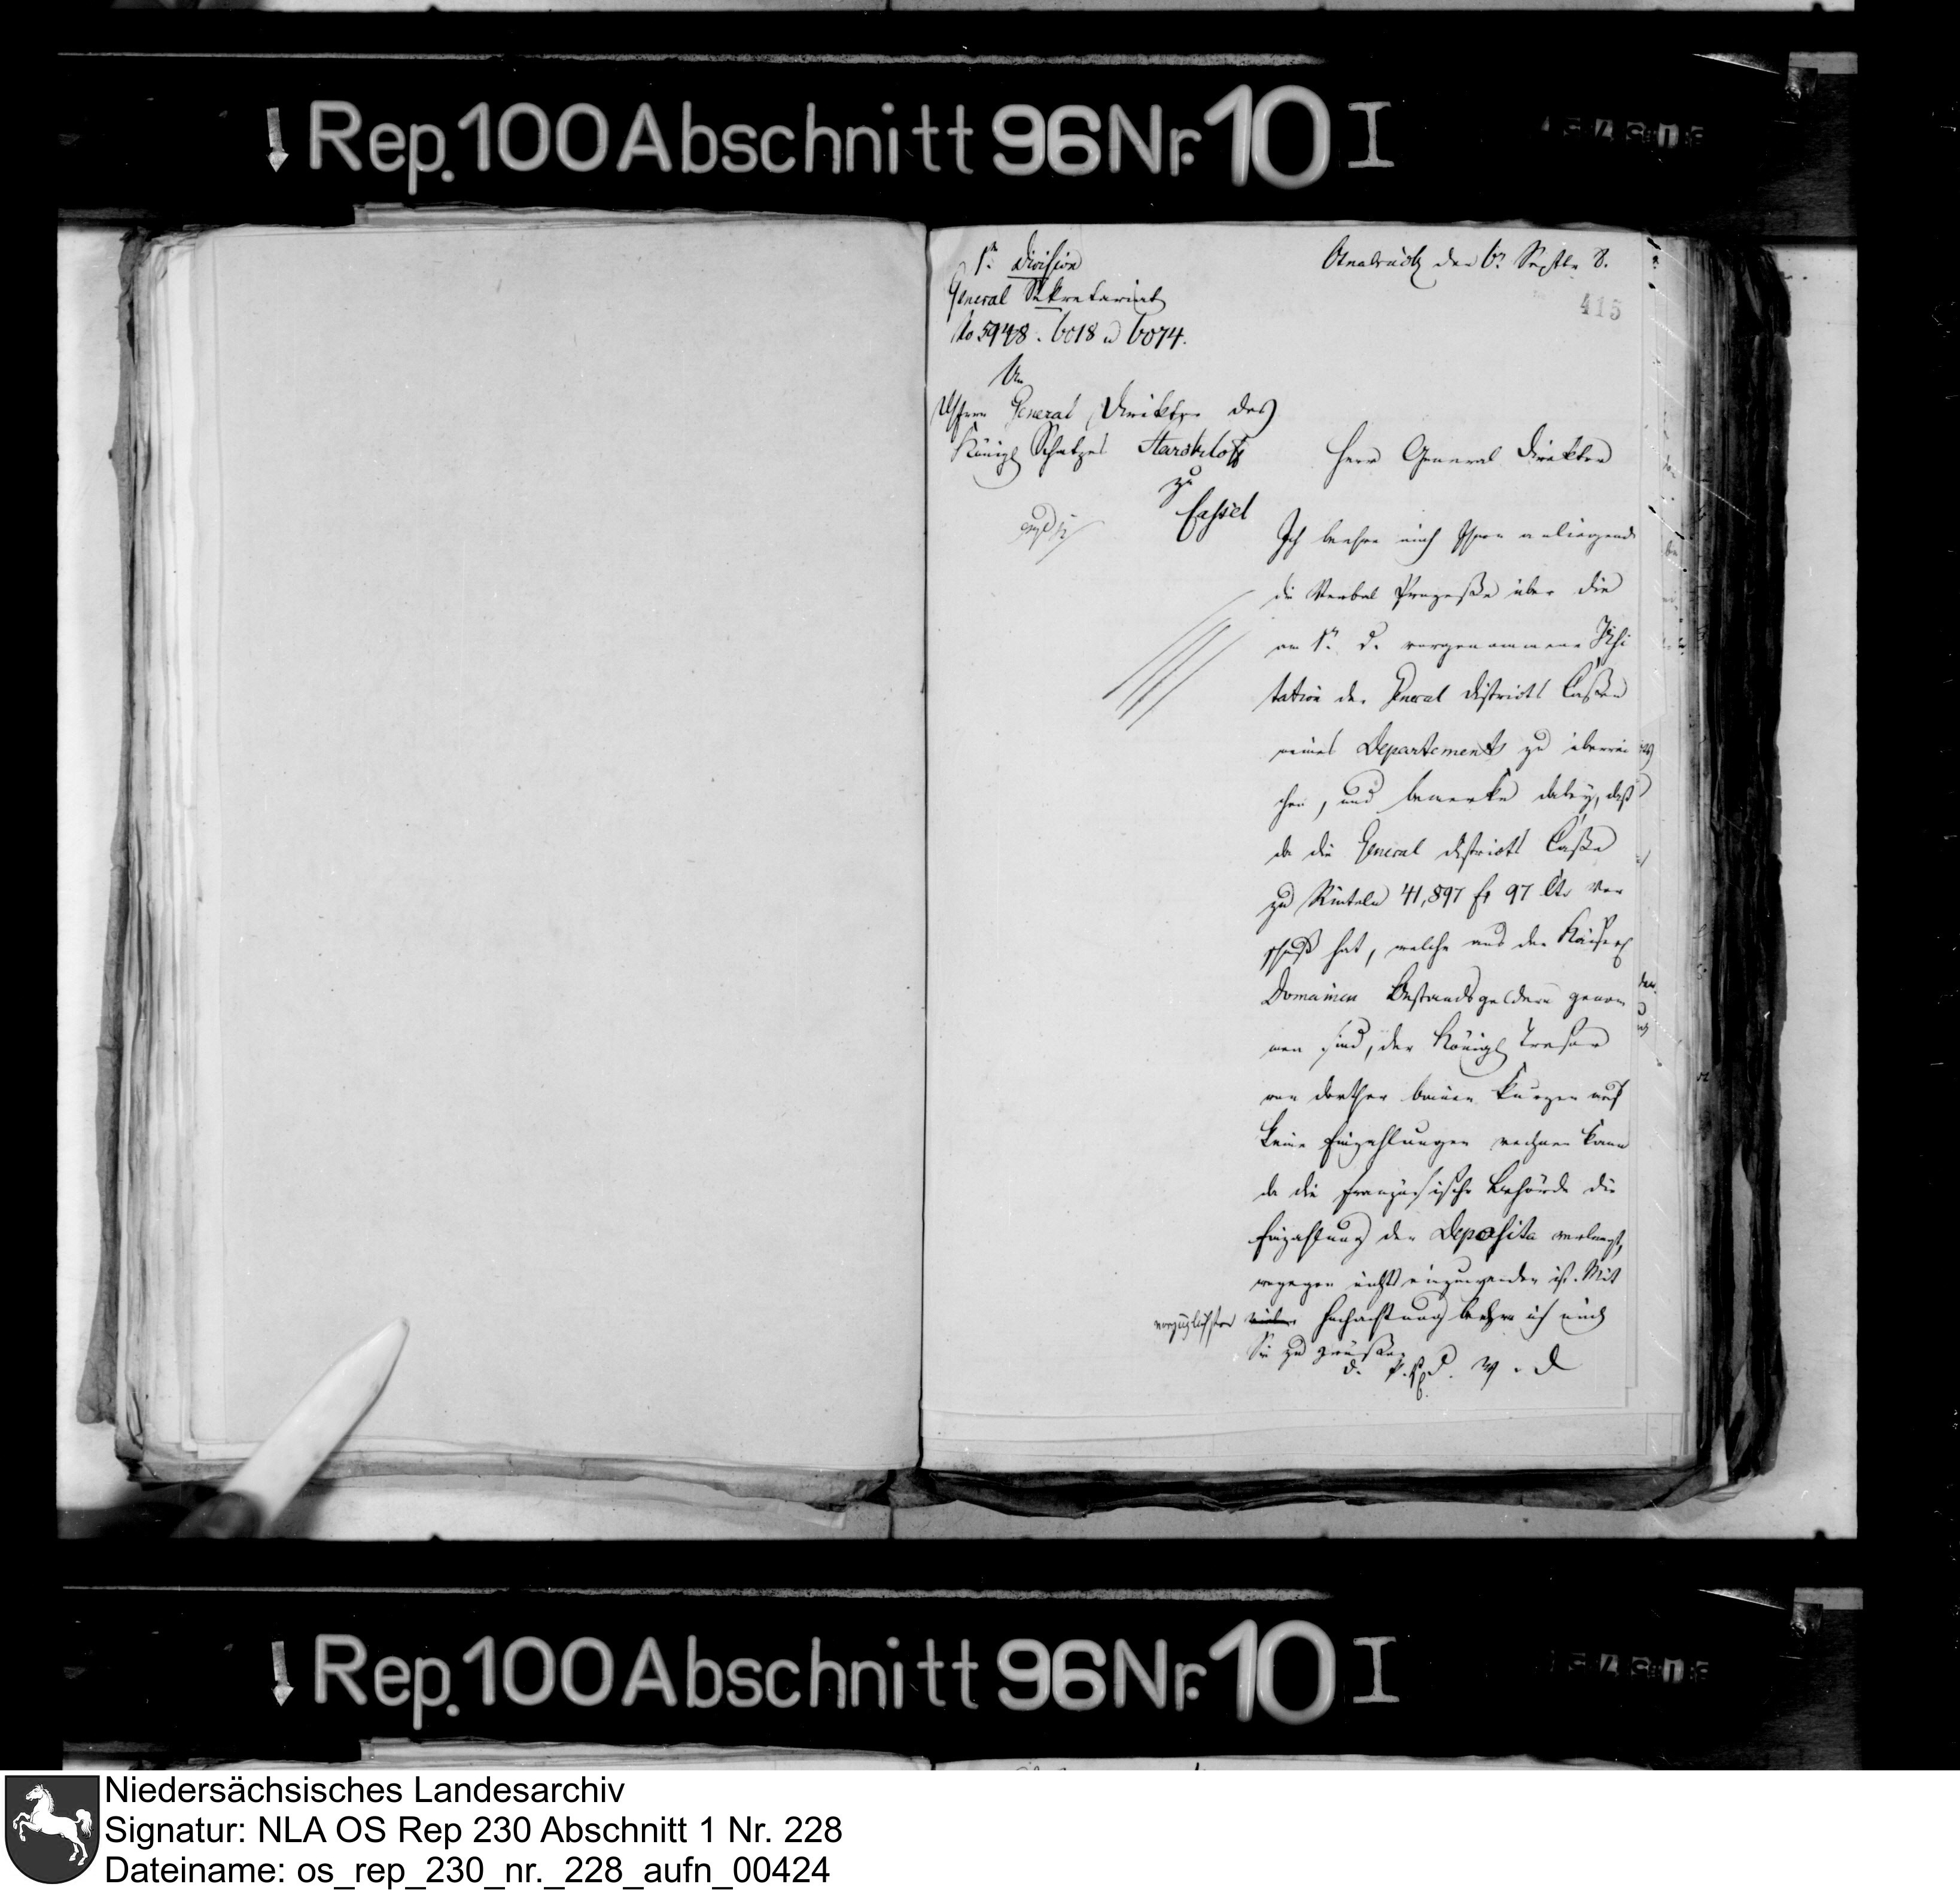 Rep. 100 Abschnitt 96 Nr. 10 I
1n. Division
General Sekretariat
No 5948. 6018 u 6074.
An
General Direktor des
Königl Schatzes
zu
Cassel
Osnabrück den 6n Septbr 8.
415
Herr General Direktor
Ich beehre mich Ihnen anliegend
die Verbal Prozeße über die
am 1n. d. vorgenommene Visi
tation der General Districts Caßen
meines Departements zu überrei
chen, und bemerke dabey, daß
da die General Districts Caße
zu Rinteln 41,897 fr 97 Cts Vor
schuß hat, welche aus den Kaiserl
Domainen Bestandsgeldern genom
men sind, der Königl Tresor
von dorther binnen kurzen auf
keine Einzahlungen rechnen kann
da die französische Behörde die
Einzahlung der Deposita verlangt,
wogegen nichts einzuwenden ist. Mit
vorzüglichster Hochachtung beehre ich mich
Sie zu grüßen
d. P. d. W. D
Rep. 100 Abschnitt 96 Nr. 10 I
Niedersächsisches Landesarchiv
Signatur: NLA OS Rep 230 Abschnitt 1 Nr. 228
Dateiname: os_rep_230_nr._228_aufn_00424